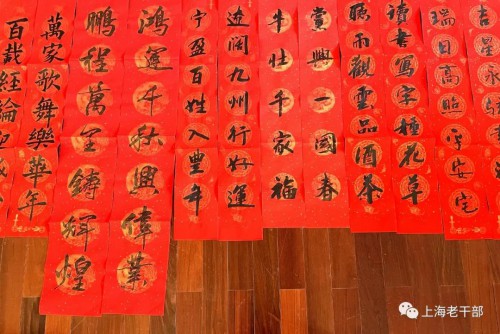 吉星
瑞日高照平安宅
讀書寫字種花草
聽雨觀雲品酒茶
黨興一國春
牛壯千家福
闊九州行好運
盈百姓入豐年
鴻運千秋興偉業
鵬程萬里鑄輝煌
萬家歌舞樂華年
百載經綸迎
上海老干部